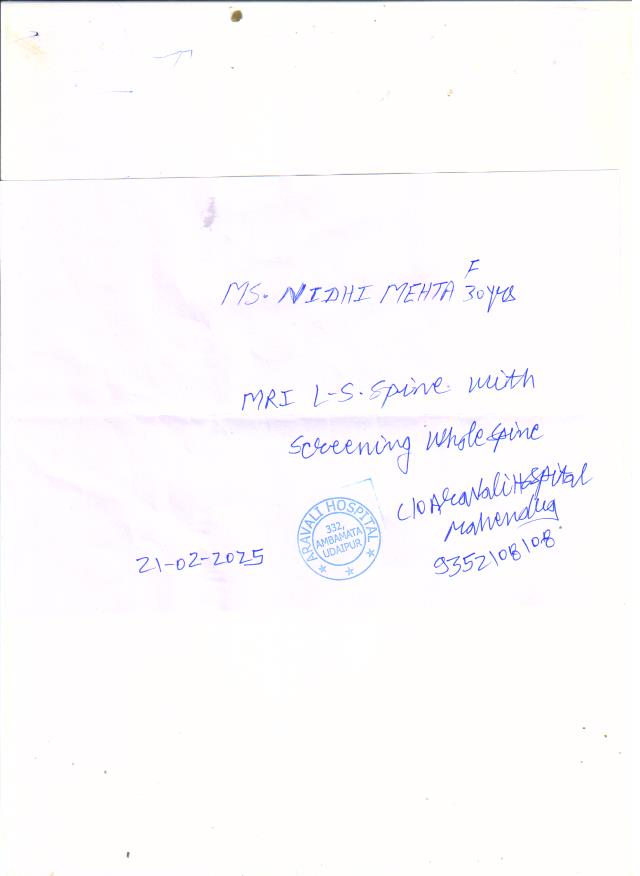 F
MS. NIDHI MEHTA 30yrs
MRI L-S. Spine with
Screening Whole Spine
C/O Aravali Hospital
9352108108
21-02-2025
ARAVALI HOSPITAL
332,
AMBAMATA
UDAIPUR